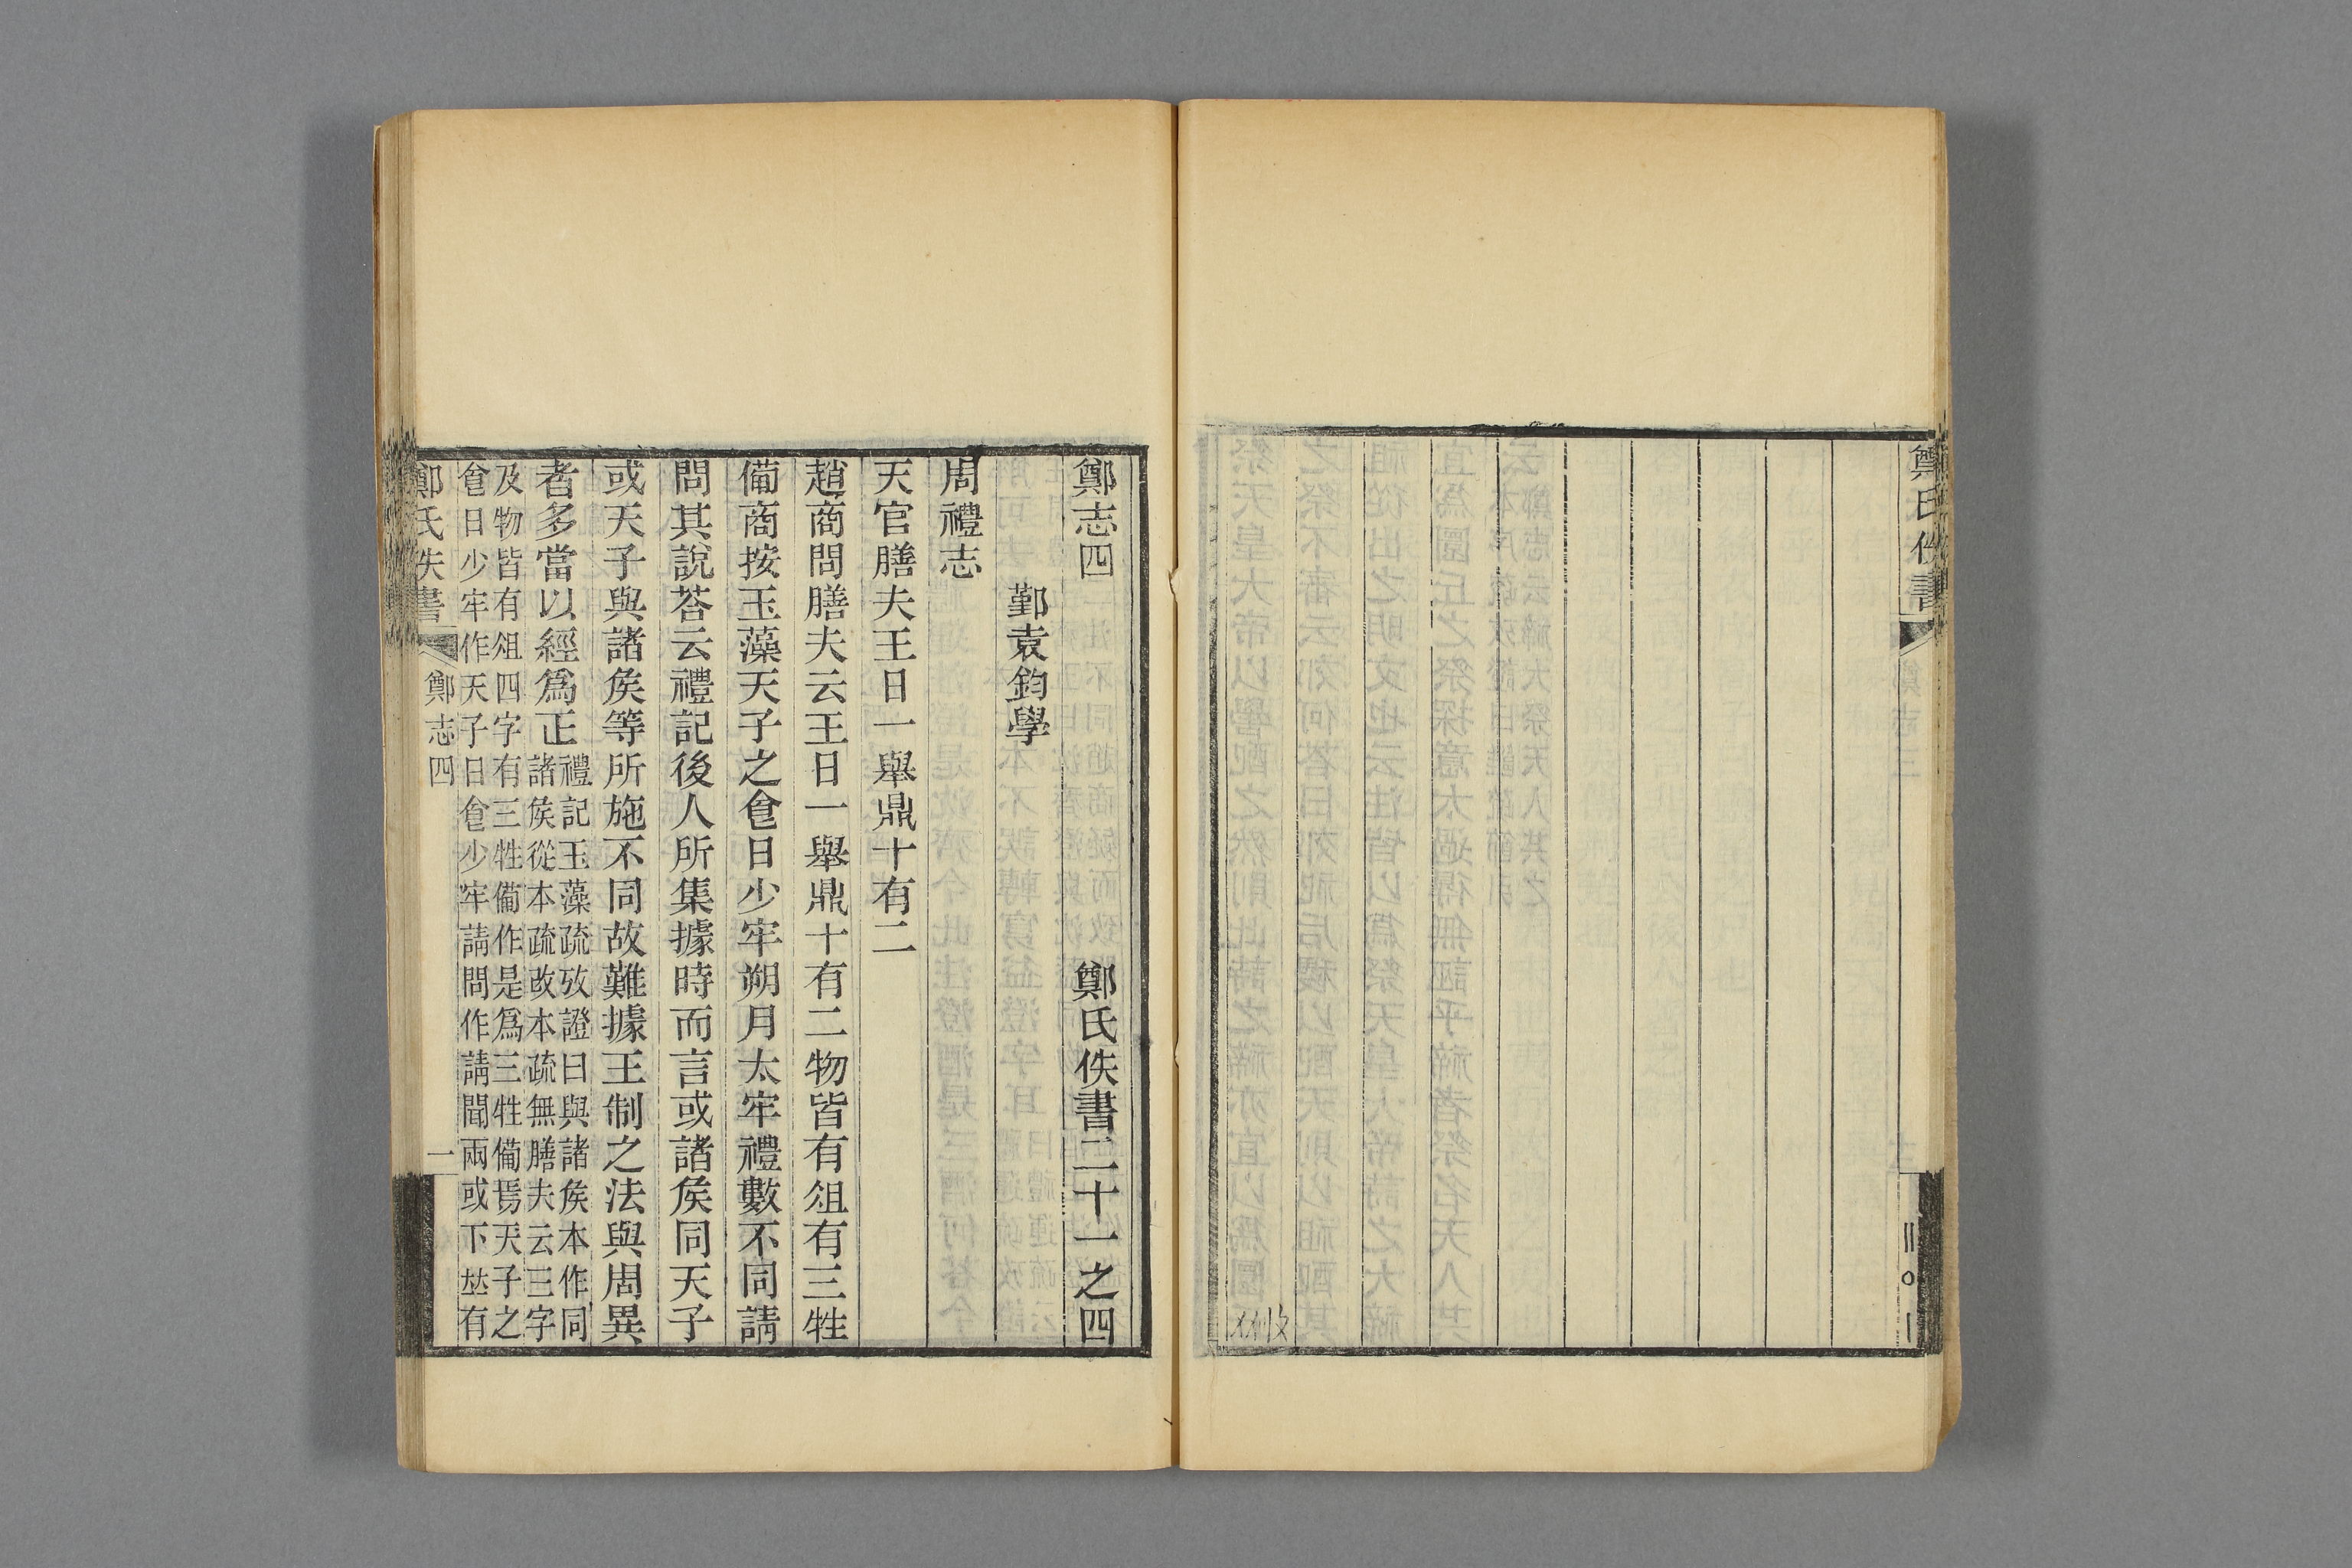 鄭氏佚書
三〇一
鄭志四 鄭氏佚書二十一之四
鄞袁鈞學
周禮志
天官膳夫王日一舉鼎十有二
趙商問膳夫云王日一舉鼎十有二物皆有俎有三牲
備商按玉藻天子之食日少牢朔月太牢禮數不同請
問其說荅云禮記後人所集據時而言或諸矦同天子
或天子與諸矦等所施不同故難據王制之法與周異
者多當以經爲正
禮記玉藻疏攷證曰與諸矦本作同
諸矦從本疏改本疏無膳夫云三字
及物皆有俎四字有三牲備作是爲三牲備焉天子之
食日少牢作天子日食少牢請問作請聞兩或下𠀤有
鄭氏佚書 鄭志四 一